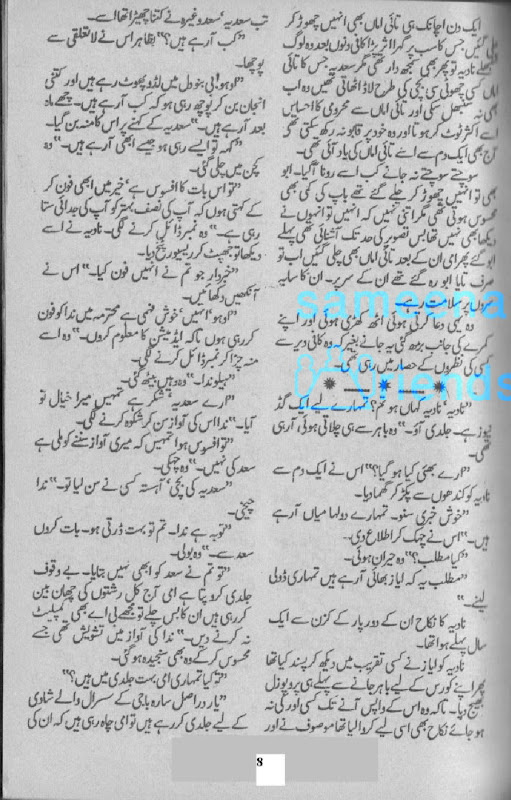 ایک دن اچانک ہی تائی اماں بھی انہیں چھوڑ کر
چلی گئیں، جس کا سب پر گہرا اثر پڑا کافی دنوں بعد وہ لوگ
سنبھلے نادیہ تو پھر بھی سمجھ دار تھی مگر سعدیہ جس کا تائی
اماں کسی چھوٹی سی بچی کی طرح لاڈ اٹھاتی تھیں وہ اب
بھی نہ سنبھل سکی اور تائی اماں سے محرومی کا احساس
اسے اکثر ٹوٹ کر ہوتا اور وہ خود پر قابو نہ رکھ سکتی تھی
آج بھی ایک دم سے اسے تائی اماں کی یاد آئی تھی۔
سوچتے سوچتے نہ جانے کب اسے رونا آگیا۔ ابو
بھی تو انہیں چھوڑ کر چلے گئے تھے باپ کی کمی بھی
محسوس ہوتی تھی مگر اتنی نہیں کہ انہیں تو انہوں نے
دیکھا بھی نہیں تھا بس تصویر کی حد تک آشنائی تھی پہلے
ابو گئے پھر امی ان کے بعد تائی اماں بھی چلی گئیں اب تو
صرف تایا ابو رہ گئے تھے ان کے سر پر۔ ان کا سایہ
ہمیشہ سلامت رہے۔
وہ یہی دعا کرتی ہوئی اٹھ کھڑی ہوئی اور اپنے
کمرے کی جانب بڑھ گئی یہ جانے بغیر کہ وہ کافی دیر سے
کسی کی نظروں کے حصار میں رہی تھی۔
"نادیہ' نادیہ کہاں ہو تم؟ تمہارے لیے ایک گڈ
نیوز ہے۔ جلدی آؤ۔" وہ باہر سے ہی چلاتی ہوئی آ رہی
تھی۔
"ارے بھئی کیا ہو گیا؟" اس نے ایک دم سے
نادیہ کو کندھوں سے پکڑ کر گھما دیا۔
"خوش خبری سنو۔ تمہارے دولہا میاں آرہے
ہیں۔" اس نے چہک کر اطلاع دی۔
"کیا مطلب؟" وہ حیران ہوئی۔
"مطلب یہ کہ ایاز بھائی آرہے ہیں تمہاری ڈولی
لینے۔"
نادیہ کا نکاح ان کے دور پار کے کزن سے ایک
سال پہلے ہوا تھا۔
نادیہ کو ایاز نے کسی تقریب میں دیکھ کر پسند کیا تھا
پھر اپنے کورس کے لیے باہر جانے سے پہلے ہی پروپوزل
بھیج دیا۔ تاکہ وہ اس کے واپس آنے تک کسی اور کی نہ
ہو جائے نکاح بھی اسی لیے کروا لیا تھا موصوف نے اور
تب سعدیہ' سعد وغیرہ نے کتنا چھیڑا تھا اسے۔
"کب آرہے ہیں؟" بظاہر اس نے لاتعلقی سے
پوچھا۔
"اوہو! بی بنو دل میں لڈو پھوٹ رہے ہیں اور کتنی
انجان بن کر پوچھ رہی ہو کہ کب آرہے ہیں۔ چھے ماہ
بعد آرہے ہیں۔" سعدیہ کے کہنے پر اس کا منہ بن گیا۔
"کہہ تو ایسے رہی ہو جیسے ابھی آرہے ہیں۔" وہ
کچن میں چلی گئی۔
"تو اس بات کا افسوس ہے' خیر میں ابھی فون کر
کے کہتی ہوں کہ آپ کی نصف بہتر کو آپ کی جدائی ستا
رہی ہے۔" وہ نمبر ڈائل کرنے لگی۔ نادیہ نے اسے
دیکھا تو جھپٹ کر ریسیور پٹخ دیا۔
"خبردار جو تم نے انہیں فون کیا۔" اس نے
آنکھیں دکھائیں۔
"اوہو! انہیں' خوش فہمی ہے محترمہ میں ندا کو فون
کر رہی ہوں تاکہ ایڈمیشن کا معلوم کروں۔" وہ اسے
منہ چڑا کر نمبر ڈائل کرنے لگی۔
"ہیلو ندا۔" وہ وہیں بیٹھ گئی۔
"ارے سعدیہ' شکر ہے تمہیں میرا خیال تو
آیا۔" ندا اس کی آواز سن کر شکوہ کرنے لگی۔
"تو افسوس ہوا تمہیں کہ میری آواز سننے کو ملی ہے
سعد کی نہیں۔" وہ چہکی۔
"سعدیہ کی بچی' آہستہ کسی نے سن لیا تو۔" ندا
چیخی۔
"توبہ ہے ندا۔ تم تو بہت ڈرتی ہو۔ بات کروں
سعد سے۔" وہ بولی۔
"تو تم نے سعد کو ابھی نہیں بتایا۔ بے وقوف
جلدی کرو پتا ہے امی آج کل رشتوں کی چھان بین
کر رہی ہیں ان کا بس چلے تو مجھے بی اے بھی کمپلیٹ
نہ کرنے دیں۔" ندا کی آواز میں تشویش تھی جسے
محسوس کر کے وہ بھی سنجیدہ ہو گئی۔
"تو کیا تمہاری امی بہت جلدی میں ہیں؟"
"یار دراصل سارہ باجی کے سسرال والے شادی
کے لیے جلدی کر رہے ہیں تو امی چاہ رہی ہیں کہ ان کی
sameena
friends
8